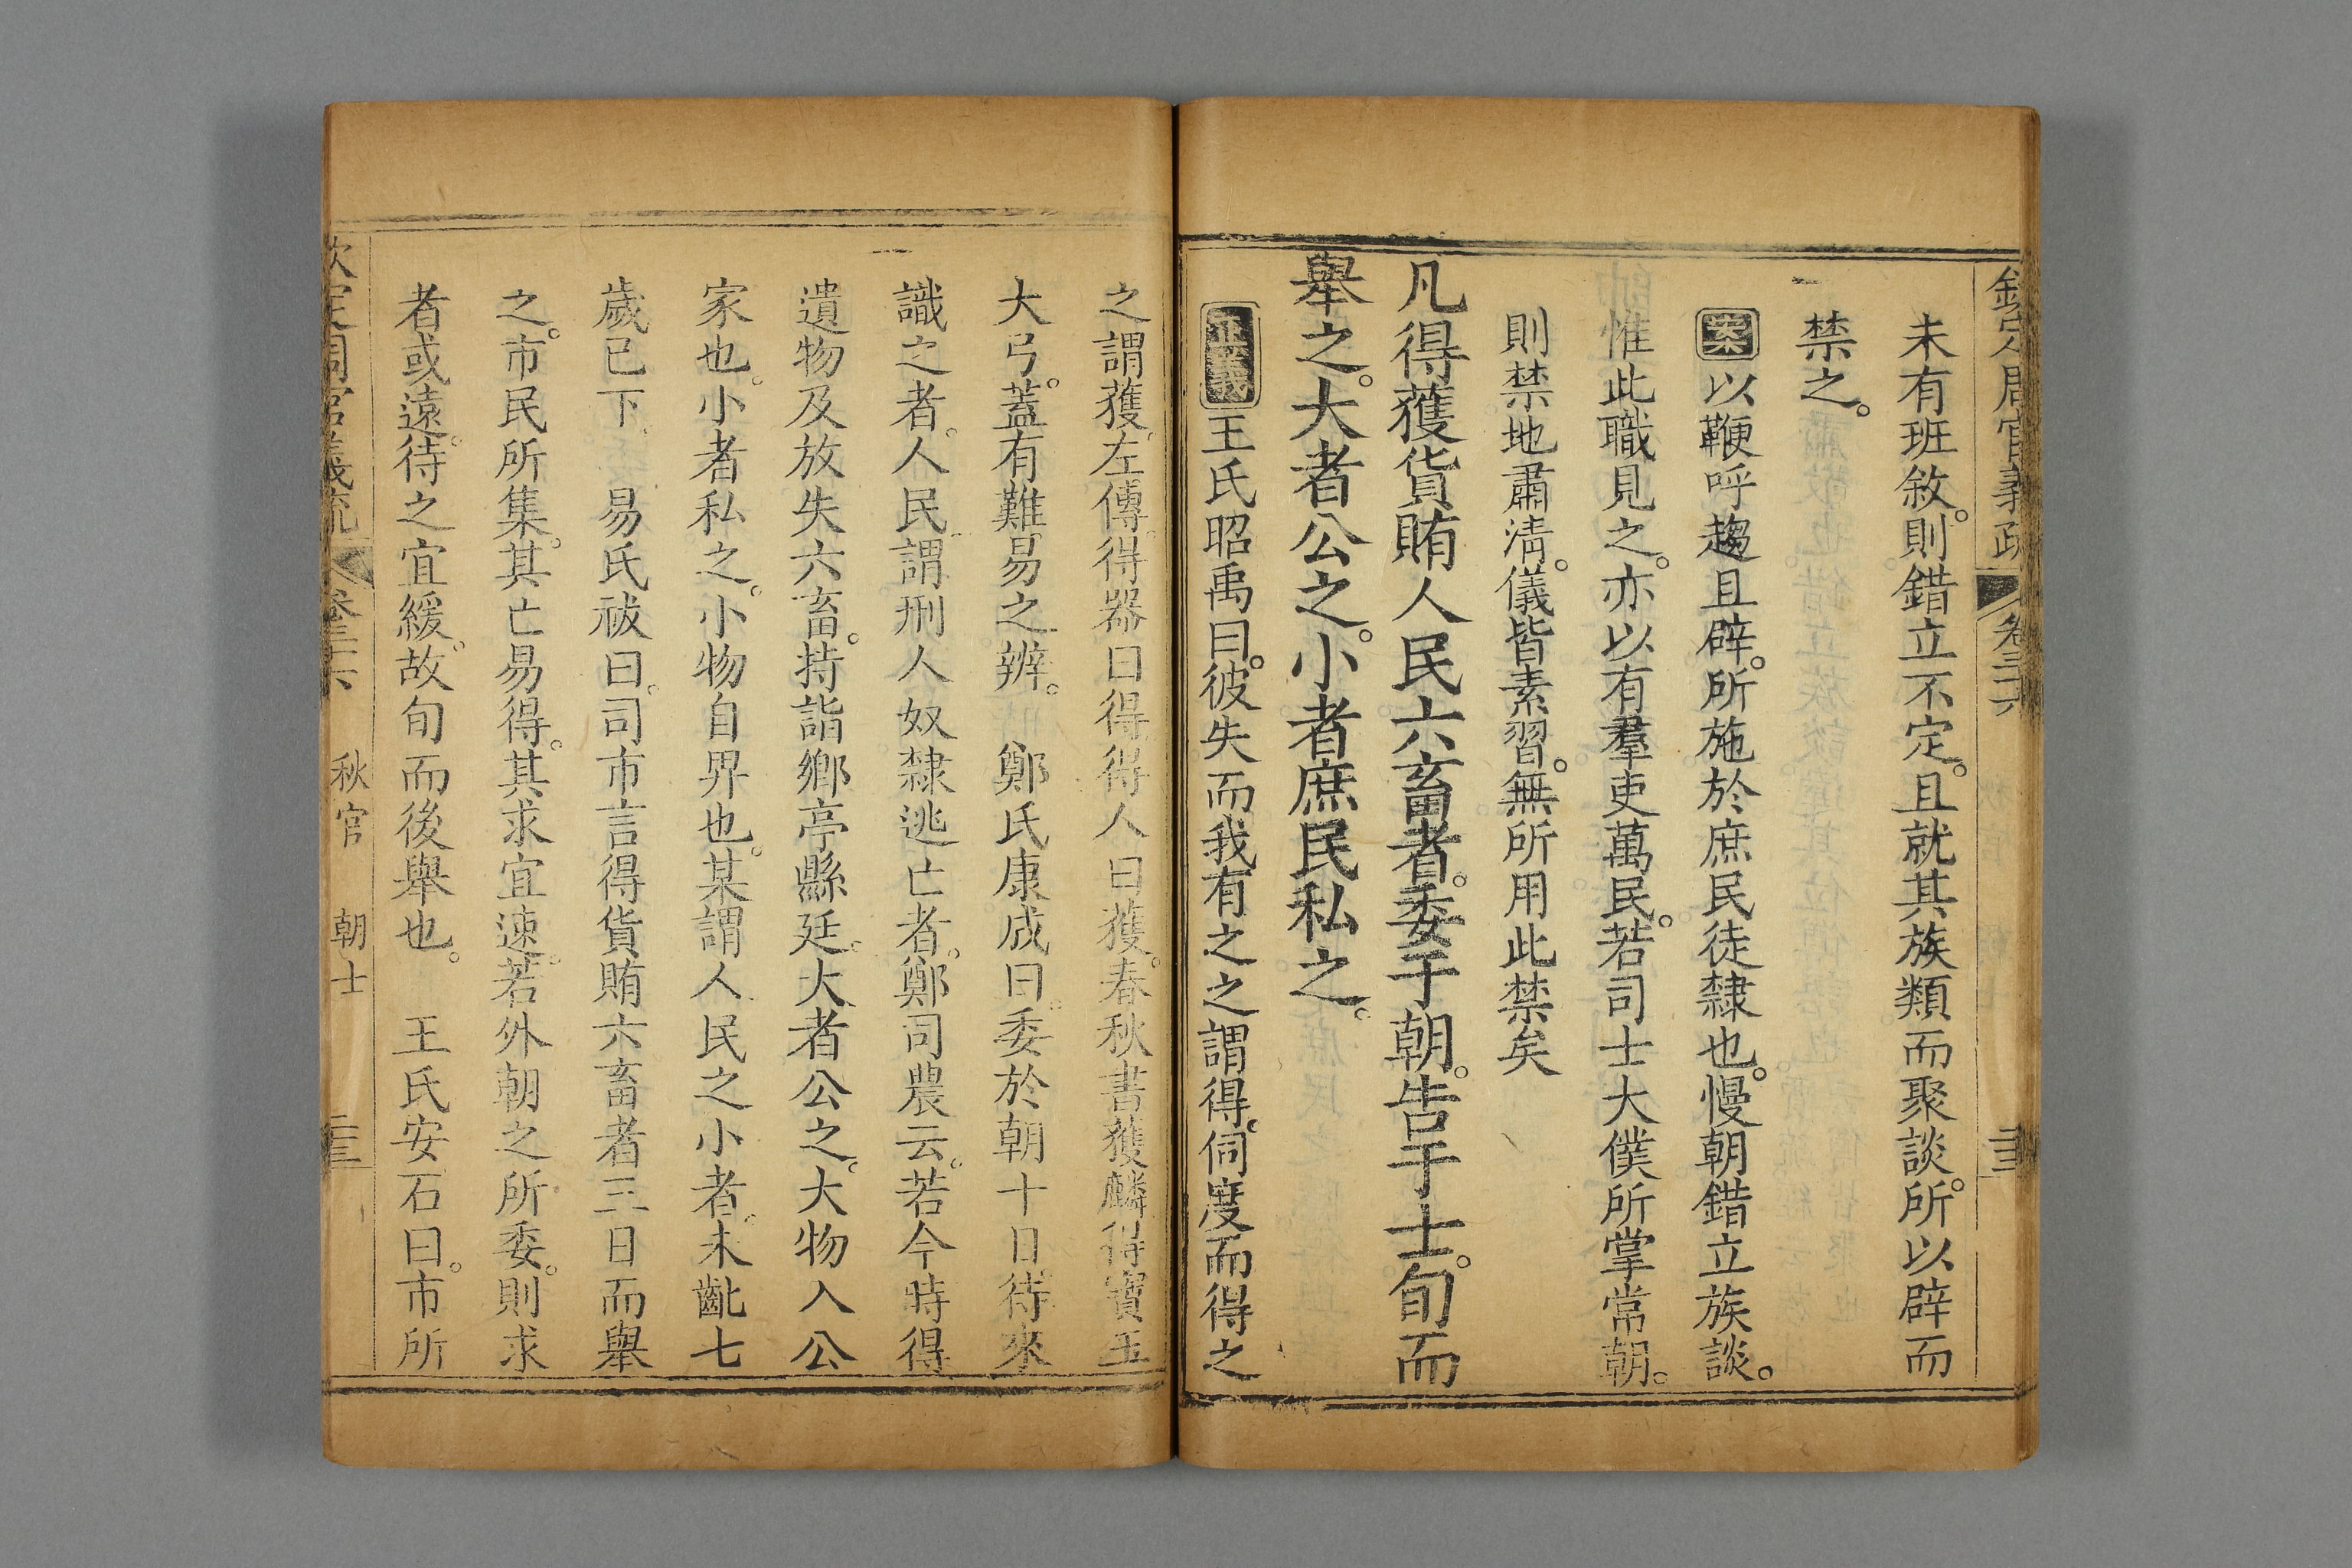 欽定周官義疏 卷三六 三三
未有班敘。則錯立不定。且就其族類而聚談。所以辟而
禁之。
案以鞭呼趨且辟。所施於庶民徒隸也。慢朝錯立族談。
惟此職見之。亦以有羣吏萬民。若司士大僕所掌常朝。
則禁地肅淸。儀皆素習。無所用此禁矣
凡得獲貨賄人民六畜者。委于朝。告于士。旬而
舉之。大者公之。小者庶民私之。
正義王氏昭禹曰。彼失而我有之之謂得。伺度而得之
之謂獲。左傳。得器曰得。得人曰獲。春秋書獲麟得寶玉
大弓。蓋有難易之辨。 鄭氏康成曰。委於朝十日。待來
識之者。人民。謂刑人奴隸逃亡者。鄭司農云。若今時得
遺物及放失六畜。持詣鄉亭縣廷。大者公之。大物入公
家也。小者私之。小物自畀也。某謂人民之小者。未齔七
歲已下。 易氏祓曰。司市言得貨賄六畜者三日而舉
之。市民所集。其亡易得。其求宜速。若外朝之所委。則求
者或遠。待之宜緩。故旬而後舉也。 王氏安石曰。市所
欽定周官義疏 卷三六 秋官 朝士 三三